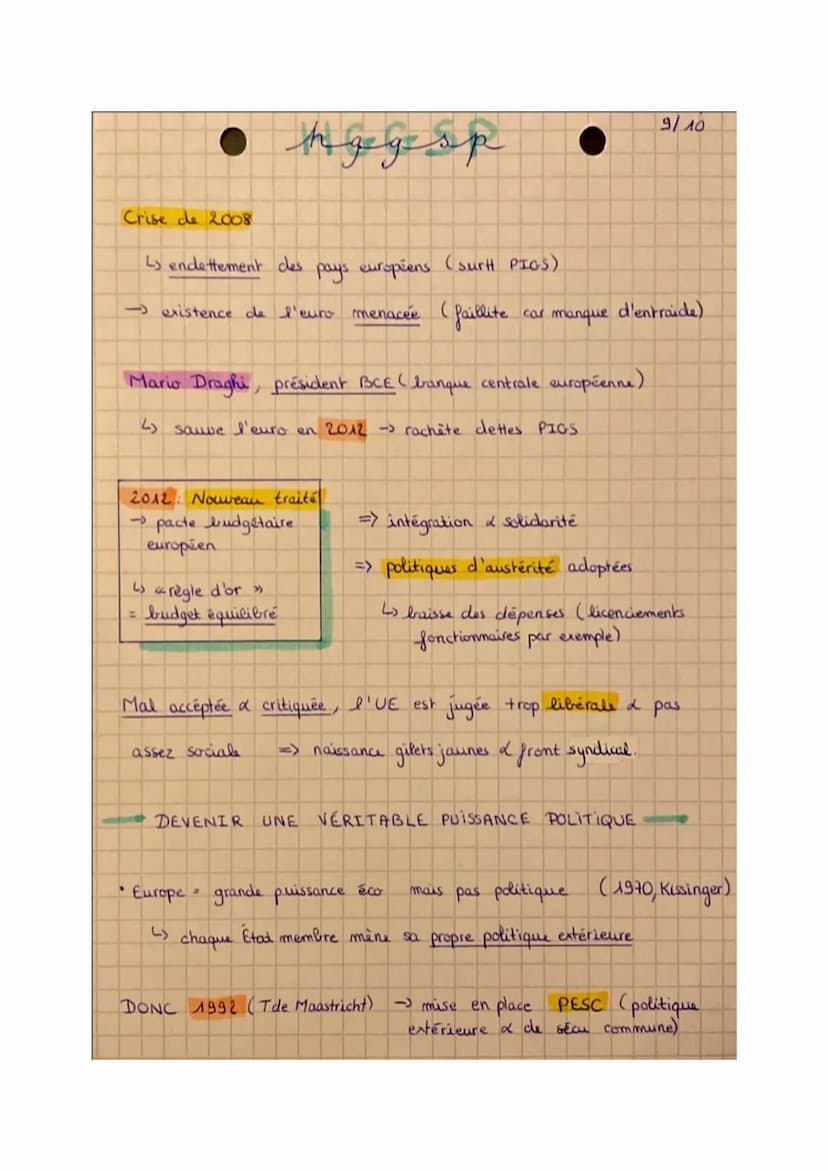 9/10
hggsp
Crise de 2008
↳ endettement des pays européens (surtt PIGS)
→ existence de l'euro menacée (faillite car manque d'entraide)
Mario Draghi, président BCE (banque centrale européenne)
↳ sauve l'euro en 2012 → rachète dettes PIGS
2012 : Nouveau traité
→ pacte budgétaire
européen
↳ « règle d'or »
= budget équilibré
=> intégration & solidarité
=> politiques d'austérité adoptées
↳ baisse des dépenses (licenciements
fonctionnaires par exemple)
Mal accéptée & critiquée, l'UE est jugée trop libérale & pas
assez sociale => naissance gilets jaunes & front syndical.
DEVENIR UNE VÉRITABLE PUISSANCE POLITIQUE
• Europe = grande puissance éco mais pas politique (1970, Kissinger)
↳ chaque État membre mène sa propre politique extérieure
DONC 1992 (T de Maastricht) → mise en place PESC (politique
extérieure & de sécu commune)